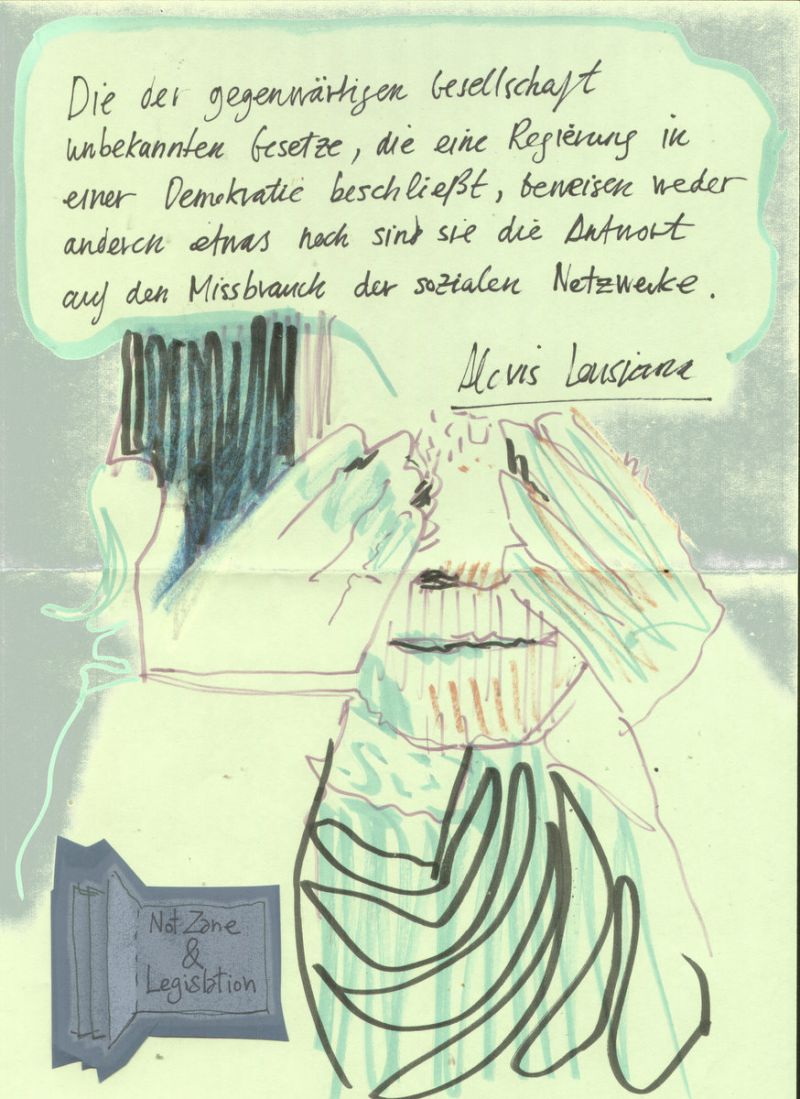 Die der gegenwärtigen Gesellschaft
unbekannten Gesetze, die eine Regierung in
einer Demokratie beschließt, beweisen weder
anderen etwas noch sind sie die Antwort
auf den Missbrauch der sozialen Netzwerke.
Alevis Lousiana
Not Zone
&
Legislation